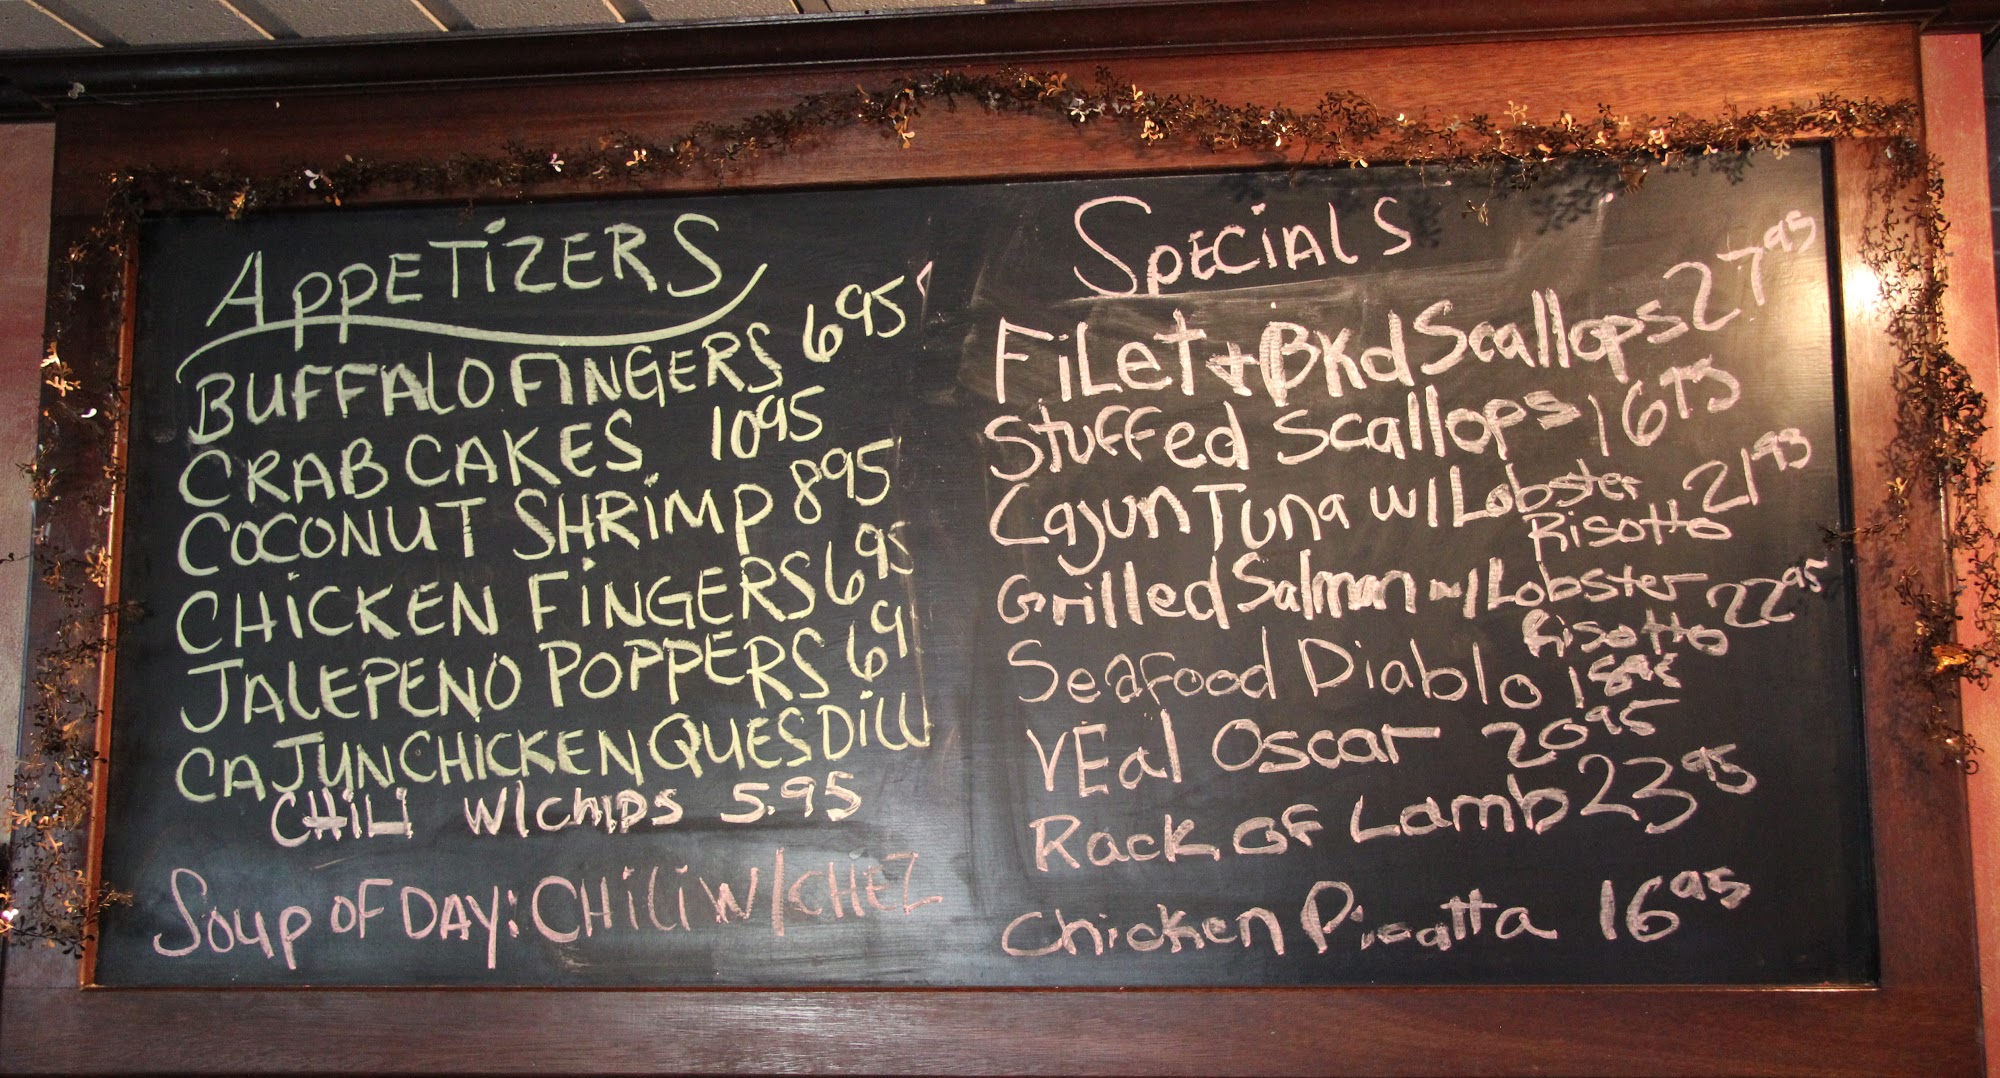 APPETiZERS
BUFFALO FINGERS 6 95
CRAB CAKES 10 95
COCONUT SHRiMP 8 95
CHiCKEN FiNGERS 6 95
JALEPENO POPPERS 6 9
CAJUN CHICKEN QUESDiLL
CHiLi W/CHIPS 5.95
Soup OF DAY: CHiLi W/CHEZ
SPECiAlS
FiLet + BKd Scallops 27 95
Stuffed Scallops 16 75
Cajun Tuna w/ Lobster Risotto 21 93
Grilled Salmon w/ Lobster Risotto 22 95
Seafood Diablo
VEal Oscar 20 95
Rack OF Lamb 23 95
Chicken Picatta 16 95